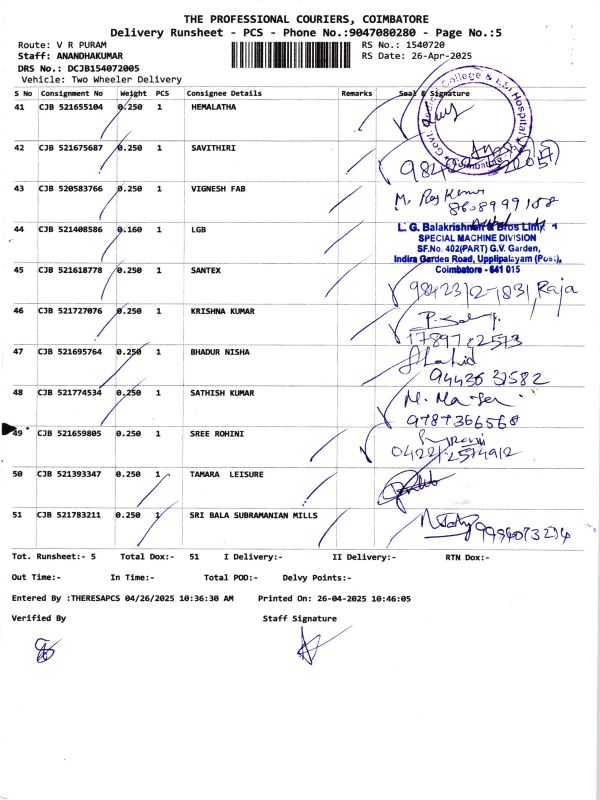 THE PROFESSIONAL COURIERS, COIMBATORE
Delivery Runsheet - PCS - Phone No.:9047080280 - Page No.:5
Route: V R PURAM RS No.: 1540720
Staff: ANANDHAKUMAR RS Date: 26-Apr-2025
DRS No.: DCJB154072005
Vehicle: Two Wheeler Delivery
S No Consignment No Weight PCS Consignee Details Remarks Seal & Signature
41 CJB 521655104 0.250 1 HEMALATHA
Govt. Medical College & ESI Hospital Coimbatore
42 CJB 521675687 0.250 1 SAVITHIRI
43 CJB 520583766 0.250 1 VIGNESH FAB
M. Raj Kumar
8608999188
44 CJB 521408586 0.160 1 LGB
L. G. Balakrishnan & Bros Limi
SPECIAL MACHINE DIVISION
SF.No. 402(PART) G.V. Garden,
Indira Garden Road, Upplipalayam (Post),
Coimbatore - 641 015
45 CJB 521618778 0.250 1 SANTEX
98423127831, Raja
46 CJB 521727076 0.250 1 KRISHNA KUMAR
47 CJB 521695764 0.250 1 BHADUR NISHA
Shahid
9443631582
48 CJB 521774534 0.250 1 SATHISH KUMAR
9787366568
49 CJB 521659805 0.250 1 SREE ROHINI
0422/2574912
50 CJB 521393347 0.250 1 TAMARA LEISURE
51 CJB 521783211 0.250 1 SRI BALA SUBRAMANIAN MILLS
Tot. Runsheet:- 5 Total Dox:- 51 I Delivery:- II Delivery:- RTN Dox:-
Out Time:- In Time:- Total POD:- Delvy Points:-
Entered By :THERESAPCS 04/26/2025 10:36:30 AM Printed On: 26-04-2025 10:46:05
Verified By Staff Signature